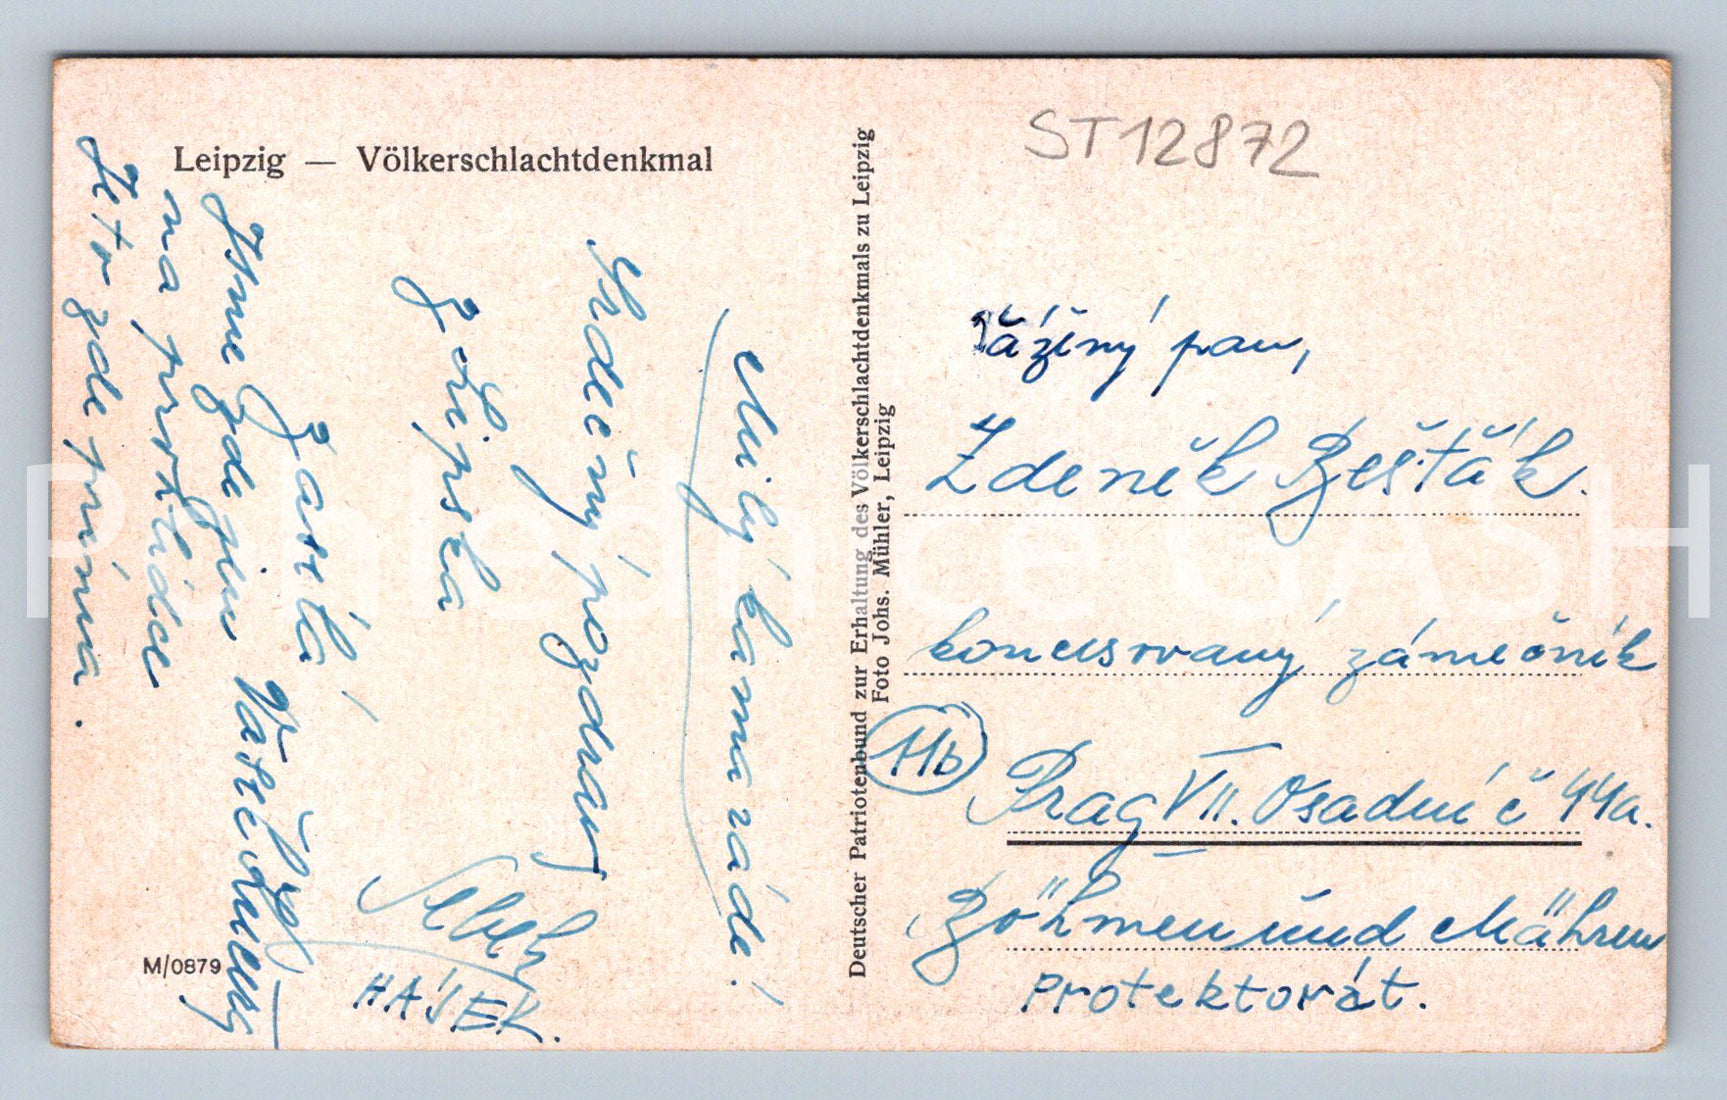 Leipzig — Völkerschlachtdenkmal
ST12872
Milý kamaráde!
Srdečný pozdrav
z Lipska
zasílá
Jsme zde
na prohlídce
Je to zde prima.
HÁJEK.
M/0879
Deutscher Patriotenbund zur Erhaltung des Völkerschlachtdenkmals zu Leipzig
Foto Johs. Mühler, Leipzig
Vážený pan,
Zdeněk Bešťák.
koncesovaný zámečník
11b
Prag VII. Osadní č 44a.
Böhmen und Mähren
Protektorát.